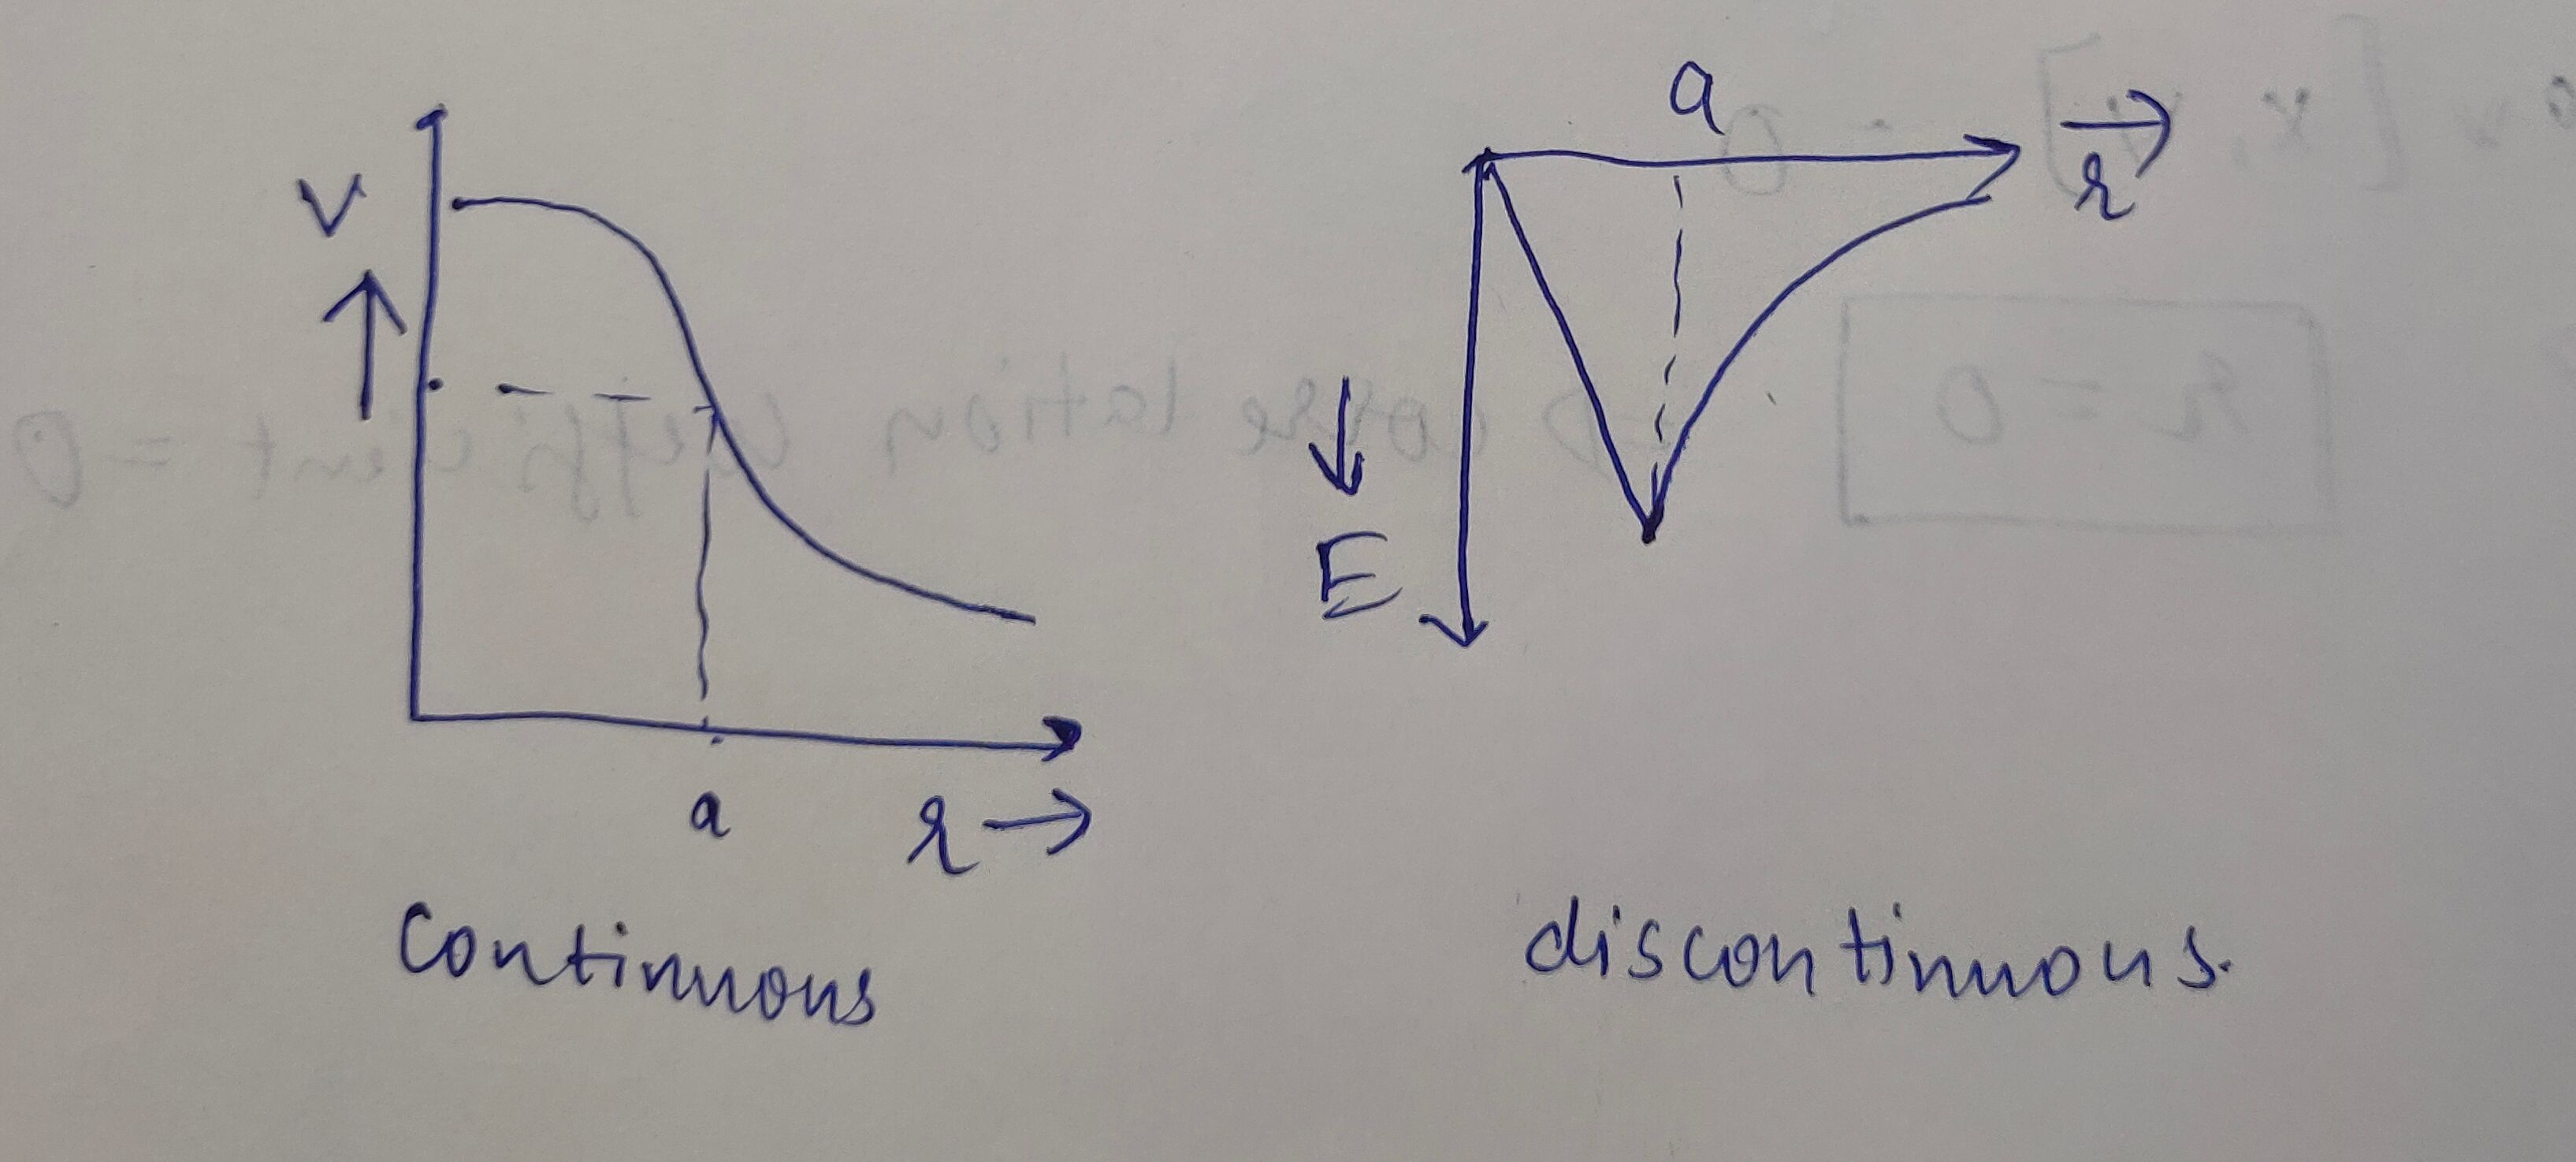 V
↑
a
r →
Continuous
a
→
r
↓
E
discontinuous.